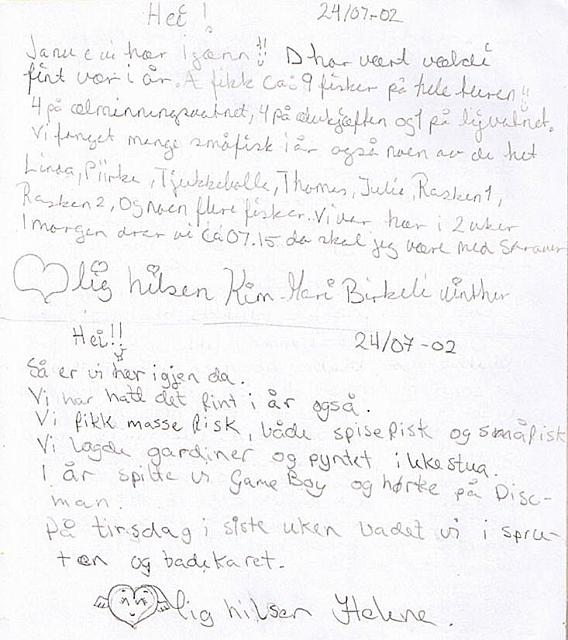 Hei! 24/07-02
Janu e vi hær igænn!! D har vært vældi
fint vær i år. Æ fikk Ca: 9 fisker på hele turen!!
4 på ælminningsvatnet, 4 på ælvkjæften og 1 på lyvatnet.
Vi fanget mange småfisk i år også noen av de het
Linda, Piirke, Tjukkebolla, Thomas, Julie, Rasken 1,
Rasken 2, Og noen flere fisker. Vi var hær i 2 uker
I morgen drar vi Ca 07.15 da skal jeg være med
lig hilsen Kim-Mari Birkeli Winther
Hei!! 24/07-02
Så er vi her igjen da.
Vi har hatt det fint i år også.
Vi fikk masse fisk, både spisefisk og småfisk
Vi lagde gardiner og pyntet i lekestua.
I år spilte vi Game Boy og hørte på Disc-
man.
På tirsdag i siste uken badet vi i spru-
ten og badekaret.
lig hilsen Helene.